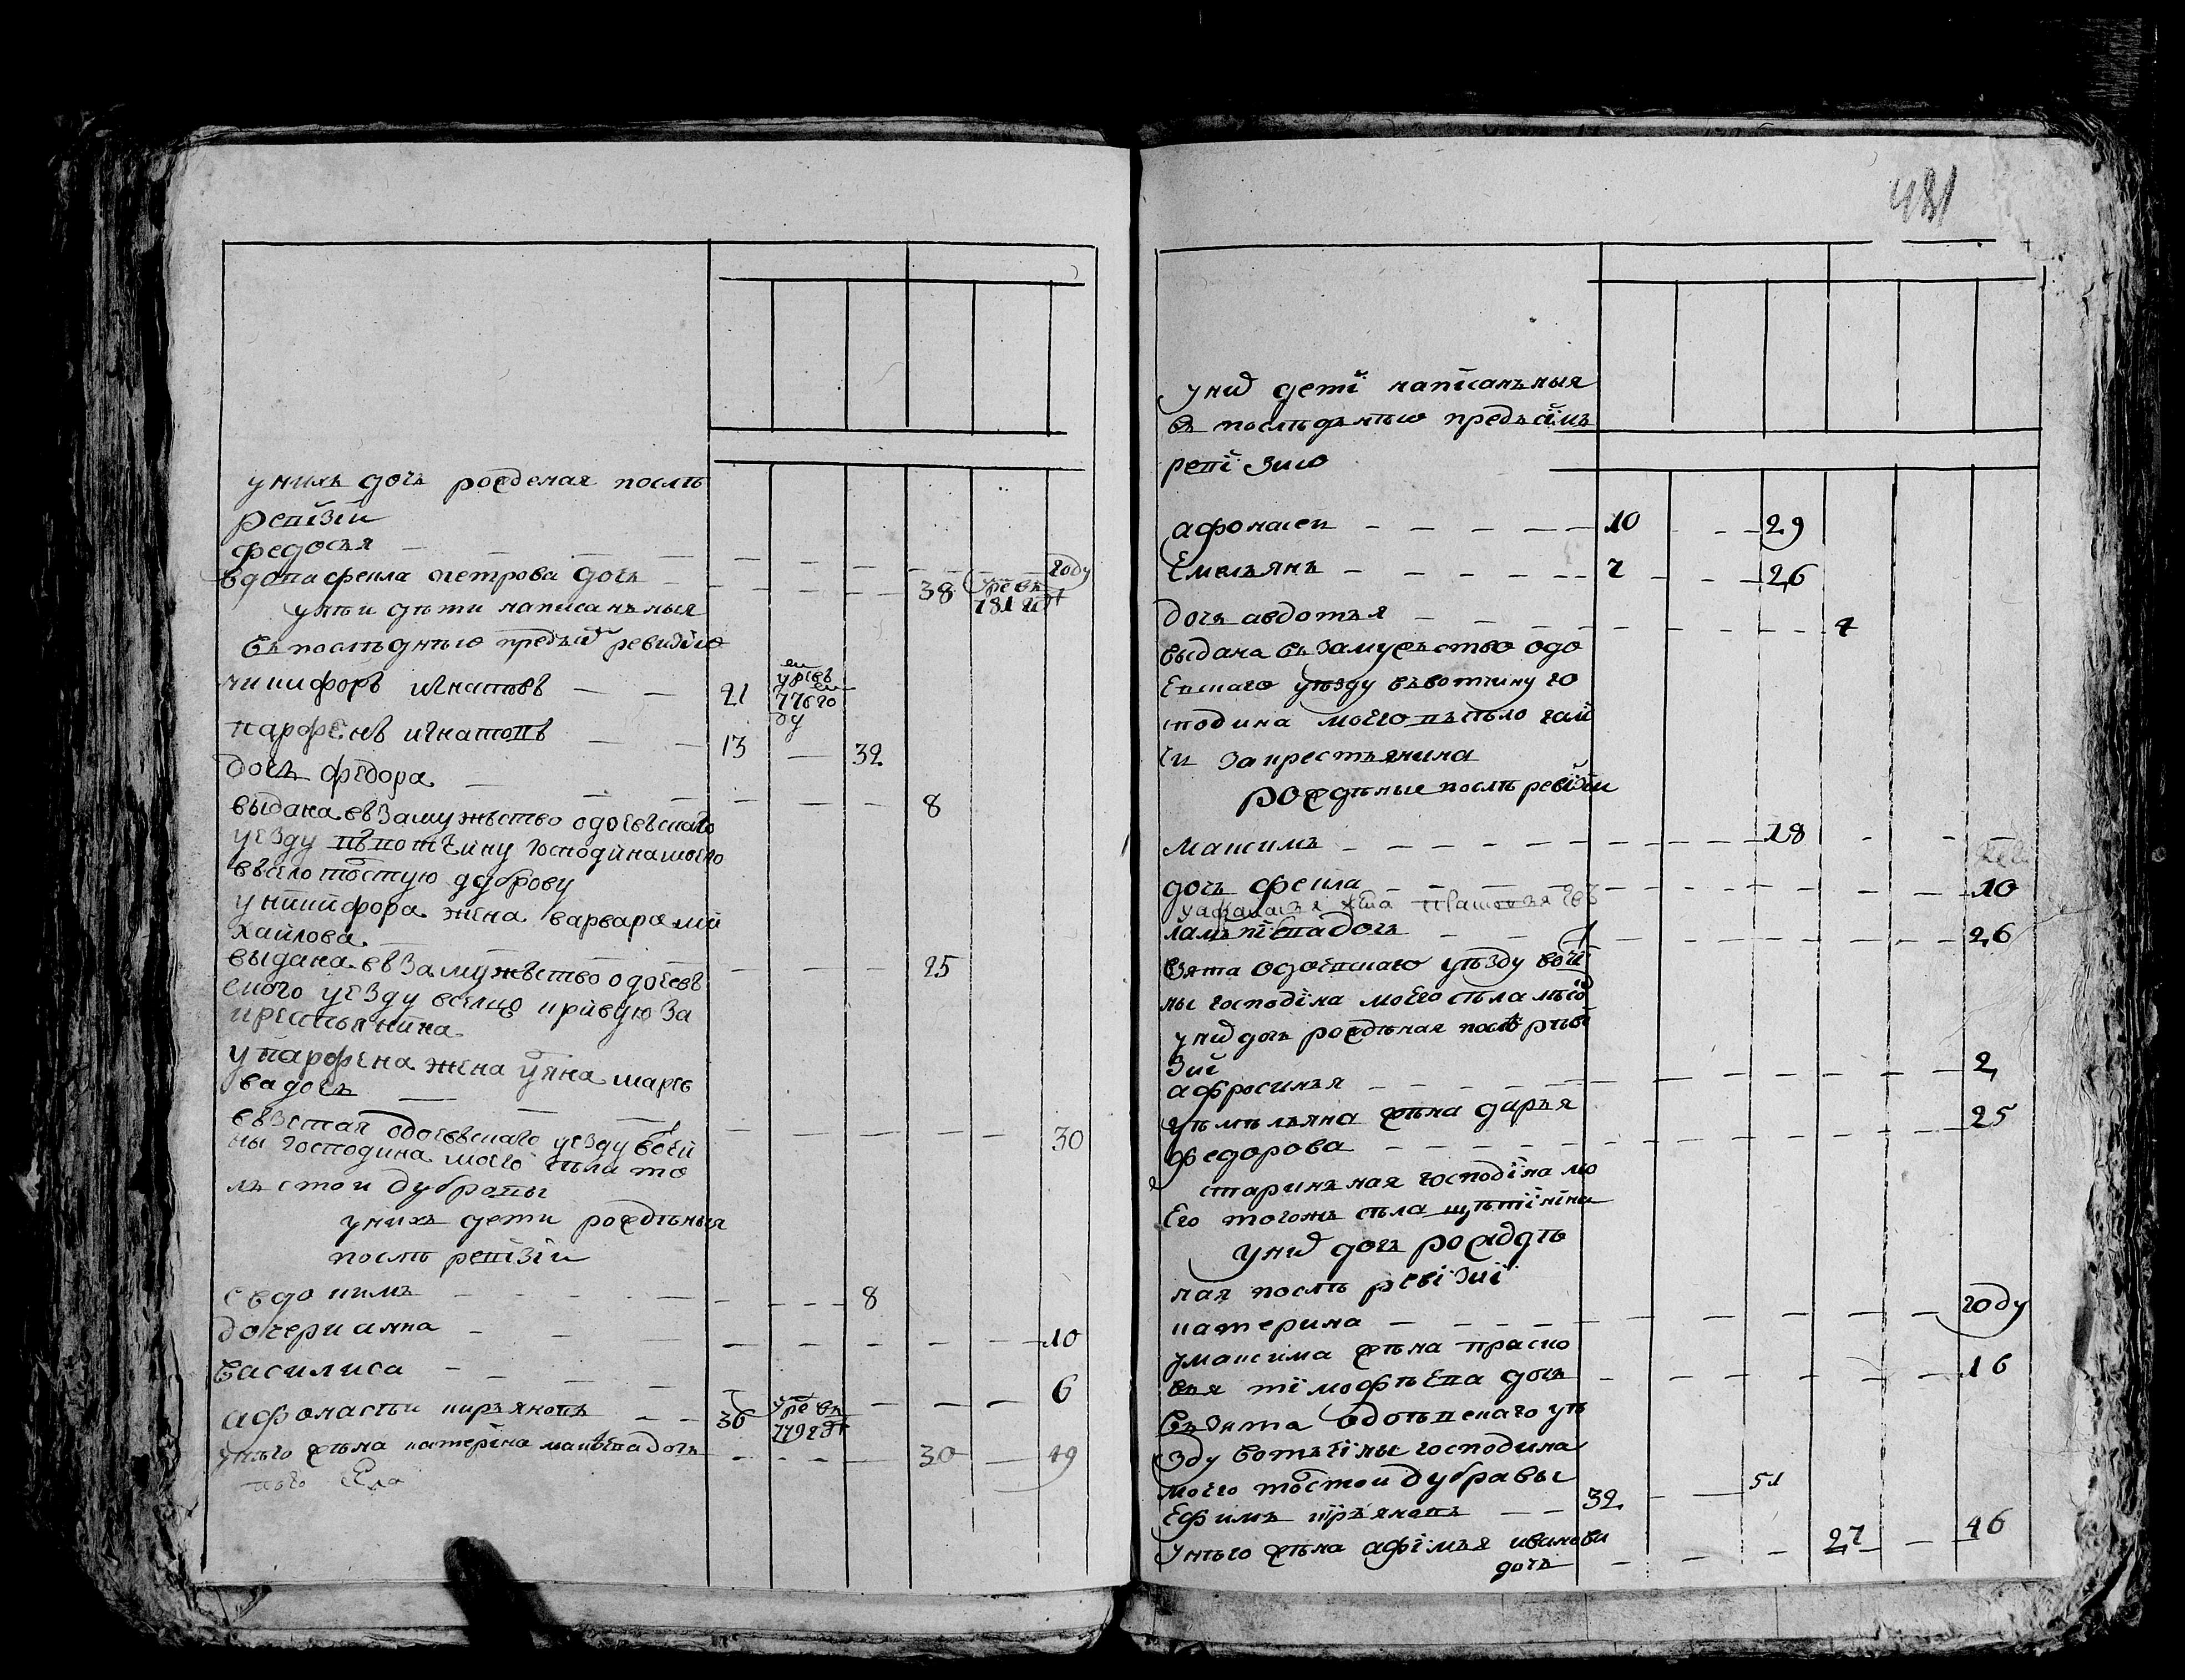 481
у нихъ дочь рожденая послѣ
ревiзiи
федосья — — — — году
вдова фекла петрова дочь — — 38 умре въ 781 году
у неи дѣти написанъныя
въ послѣднѣю предъ сiмъ ревизiю
никифоръ игнатовъ — — 21 умре въ 776 го ду
парфенъ игнатовъ — — 13 — 32
дочь федора — — 8
выдана въ замужъство одоевъскаго
уезду въ вотчину господина моего
въ село толстую дуброву
у никифора жена варвара ми
хаилова — — 25
выдана въ замужъство одоевъ
ского уезду въ селцо кривую за
крестьянина
у парфена жена уяна марко
ва дочь — — 30
въ взетая одоевъскаго уезду вотчи
ны господина моего села то
лъстои дубравы
у нихъ дети рожденыя
послѣ ревiзiи
евдокимъ — — 8
дочери анна — — 10
василиса — — 6
афонасеи киръяновъ — — 36 умре въ 779 году
у него жена катерiна маквѣева дочь — 30 — 49
у нихъ детi напiсанъныя
въ послѣденѣю предъ сiмъ
ревiзию
афонасеи — — 10 — 29
емельянъ — — 7 — 26
дочь авдотья — — 4
выдана въ замужъство одо
евскаго уѣзду въ вотчину го
сподина моего въ село
за крестьянина
рожденые послѣ ревiзии
максимъ — — 18
дочь фекла — — 10
у афанасья жена
дочь — — 26
взята одоевскаго уѣзду вотчи
ны господiна моего села
у них дочь рожденая послѣ реви
зиi
афросинья — — 2
у емельяна жена дарья
федорова — — 25
старинъная господiна мо
его того жъ села
у них дочь рожде
ная послѣ ревiзиi
катерина — — году
у максима жена праско
вья тiмофѣева дочь — — 16
въ зята одоевскаго уѣ
зду вотчiны господина
моего толстои дубравы
ефимъ киръяновъ — — 32 — 51
у него жена афiмья иванова — 27 — 46
дочь